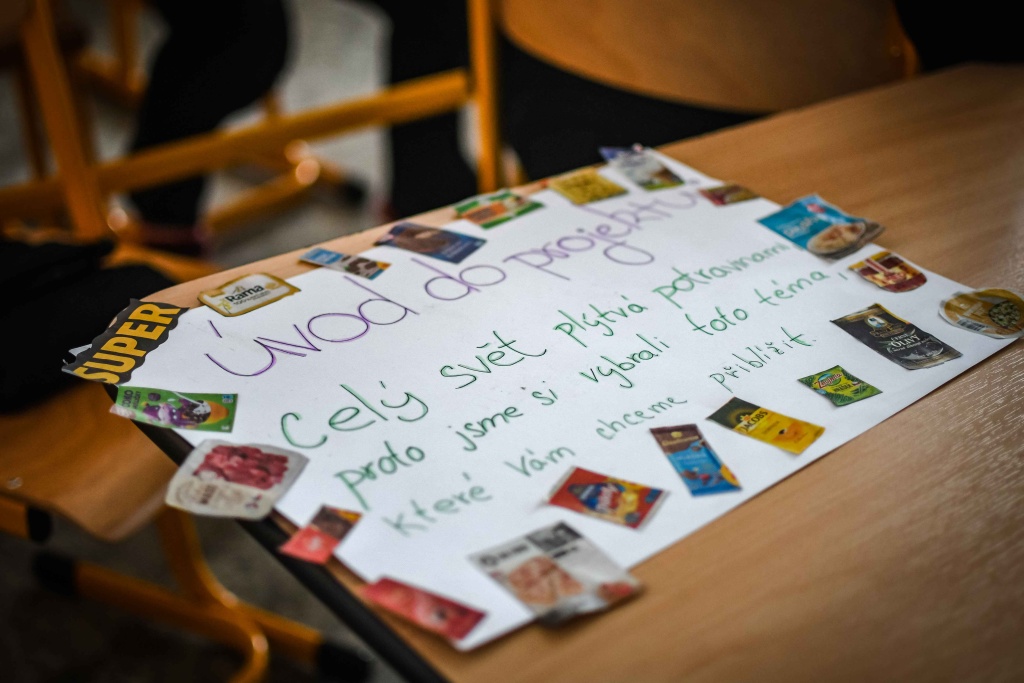 Úvod do projektu
Celý svět plýtvá potravinami
proto jsme si vybrali toto téma,
které vám chceme přiblížit.
SUPER
Rama
JACOBS
OLIVY